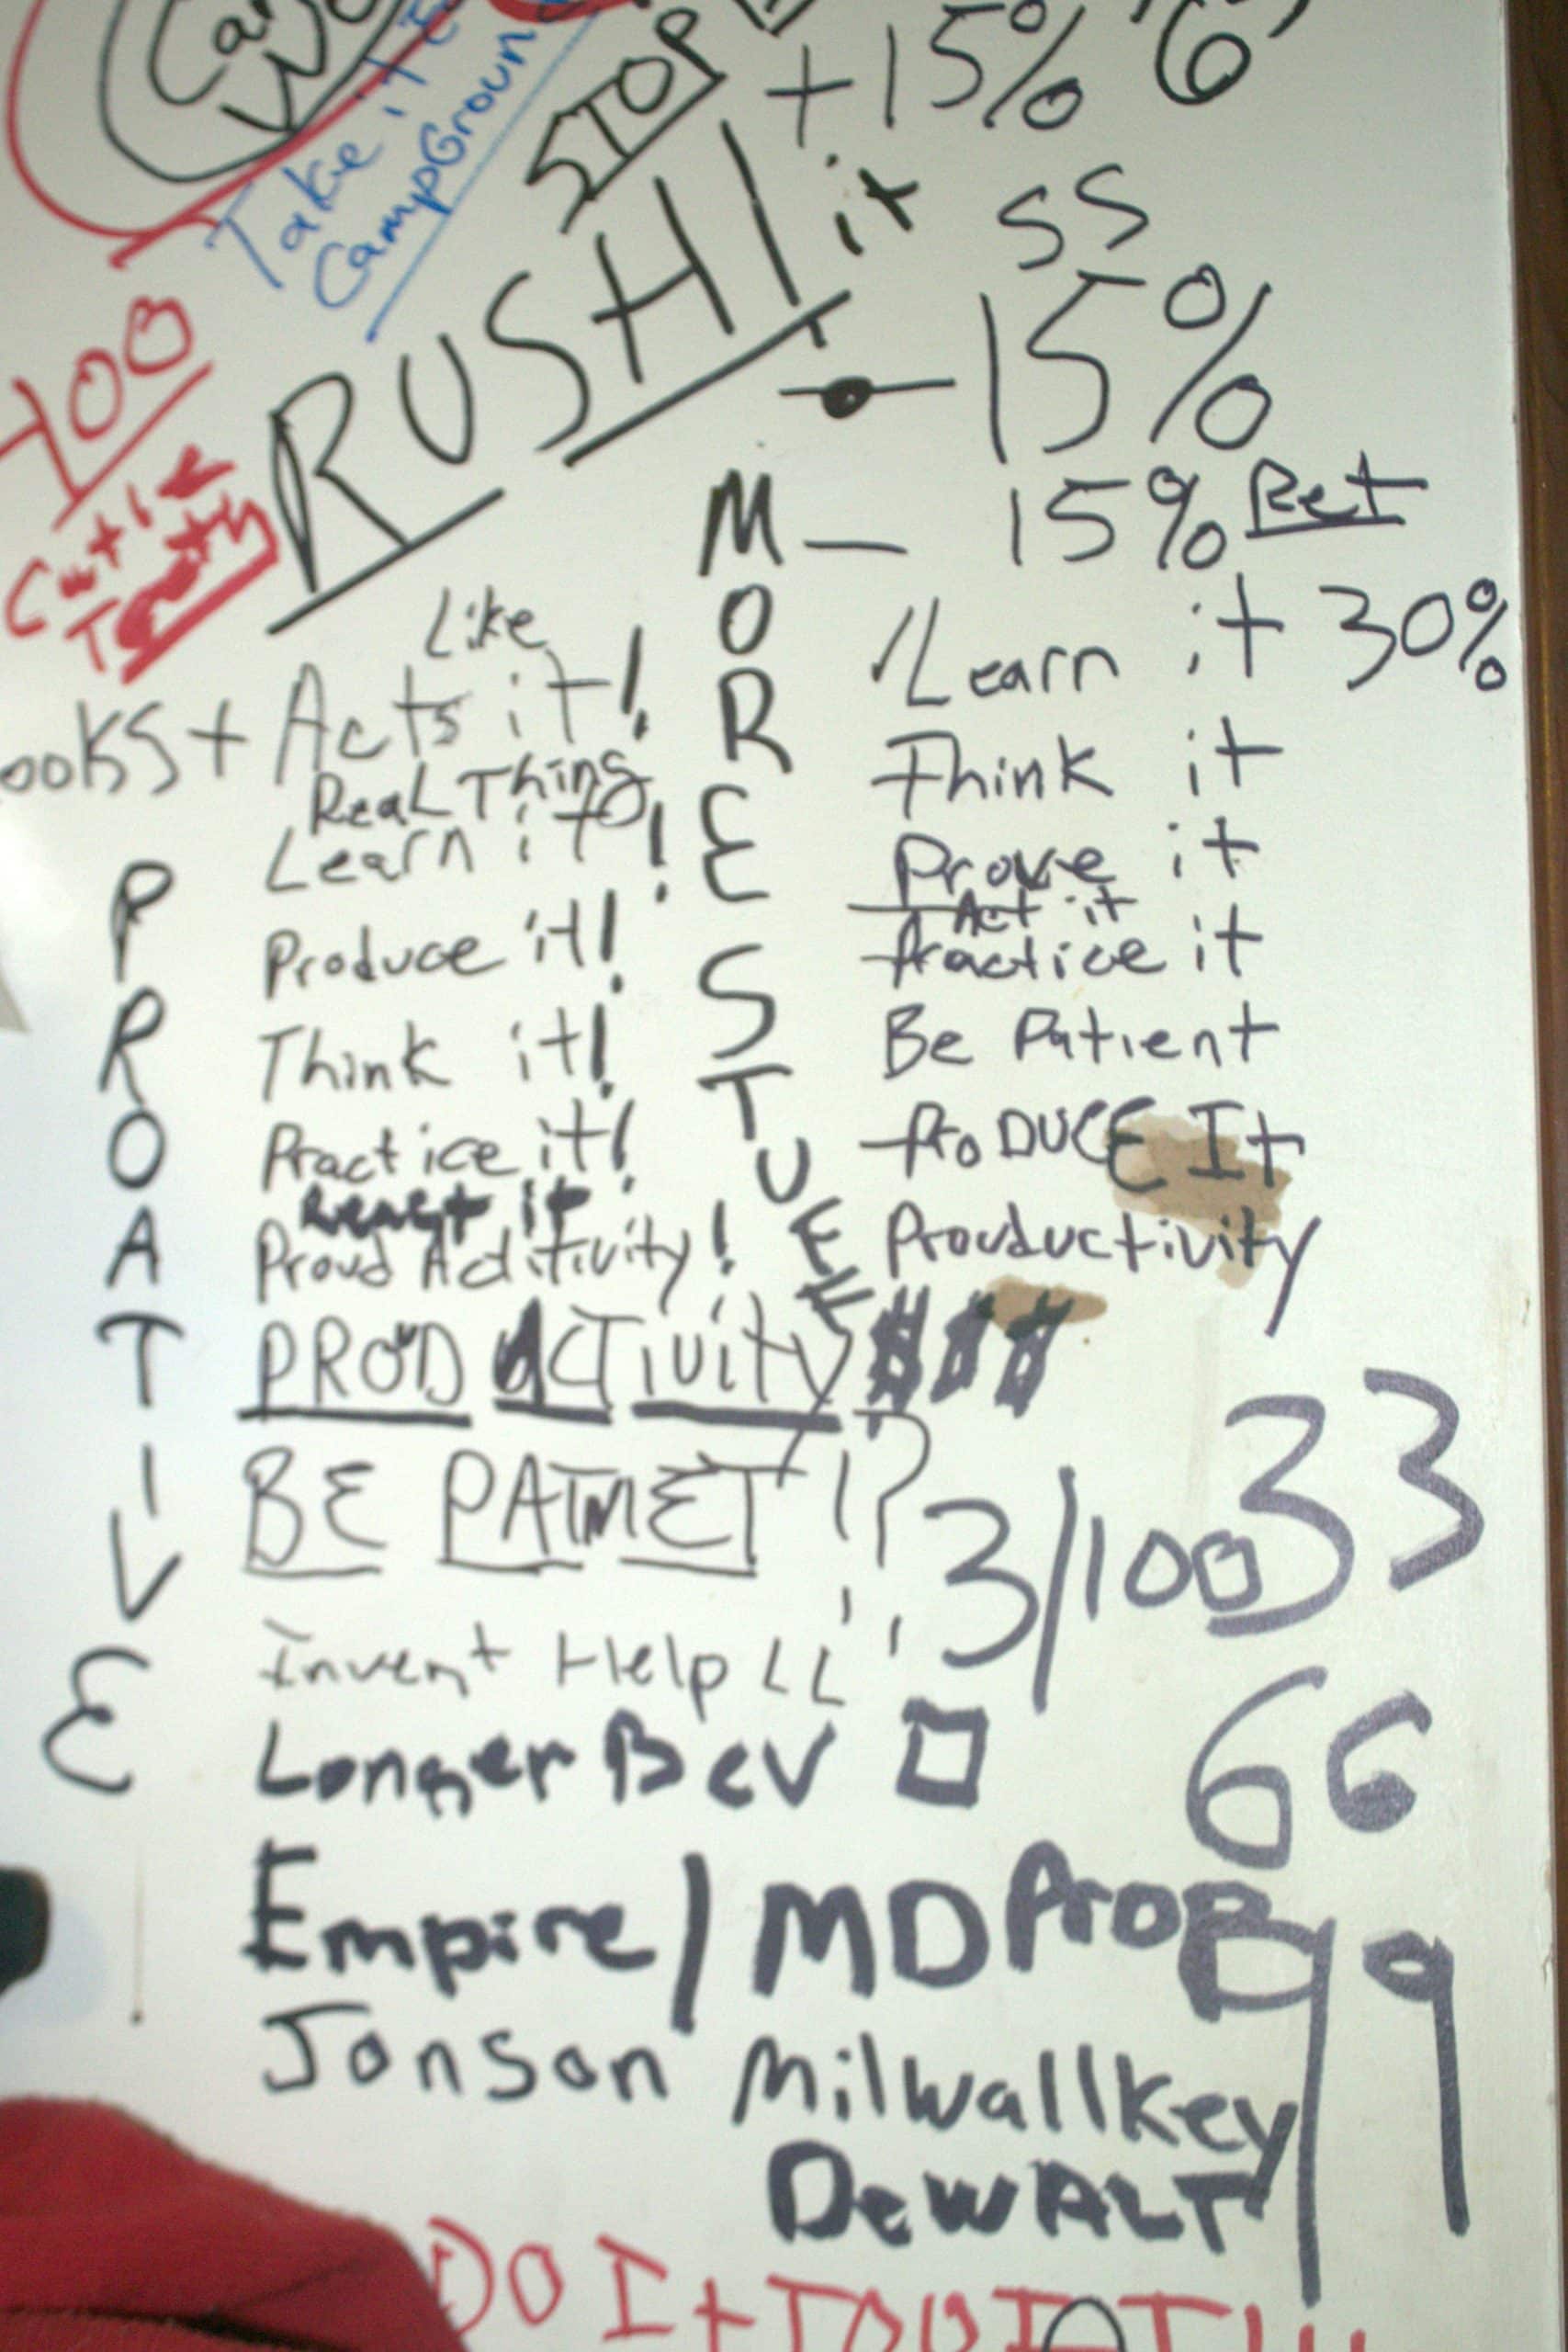 Take it
STOP
+15%
6
CampGroun
RUSH! it
SS
100
15%
M — 15% Ret
Like
O
Learn it 30%
ooks + Acts it!
R
Think it
Real Thing
Learn it!
E
Prove it
P
Act it
Produce it!
S
Practice it
R
Think it!
Be Patient
T
O
Practice it!
U
ProDUCE It
A
Proud Acitivity!
E
Prouductivity
T
PROD ACTivity $$$
I
BE PATNET !?
3/100
33
V
Invent Help LL
E
Longer Bev
66
Empire/MD Prop
99
Jonson Milwallkey
DeWALT
DO It